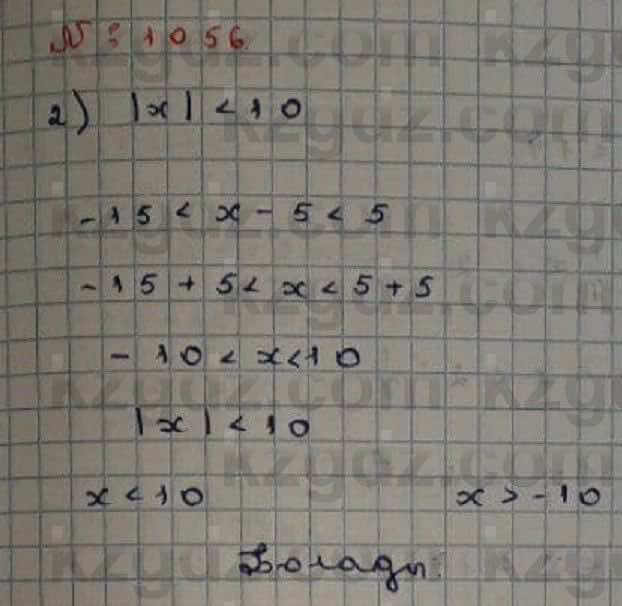 № : 1056
2) |x| < 10
-15 < x - 5 < 5
-15 + 5 < x < 5 + 5
- 10 < x < 10
|x| < 10
x < 10 x > -10
Болады.
kzgdz.com